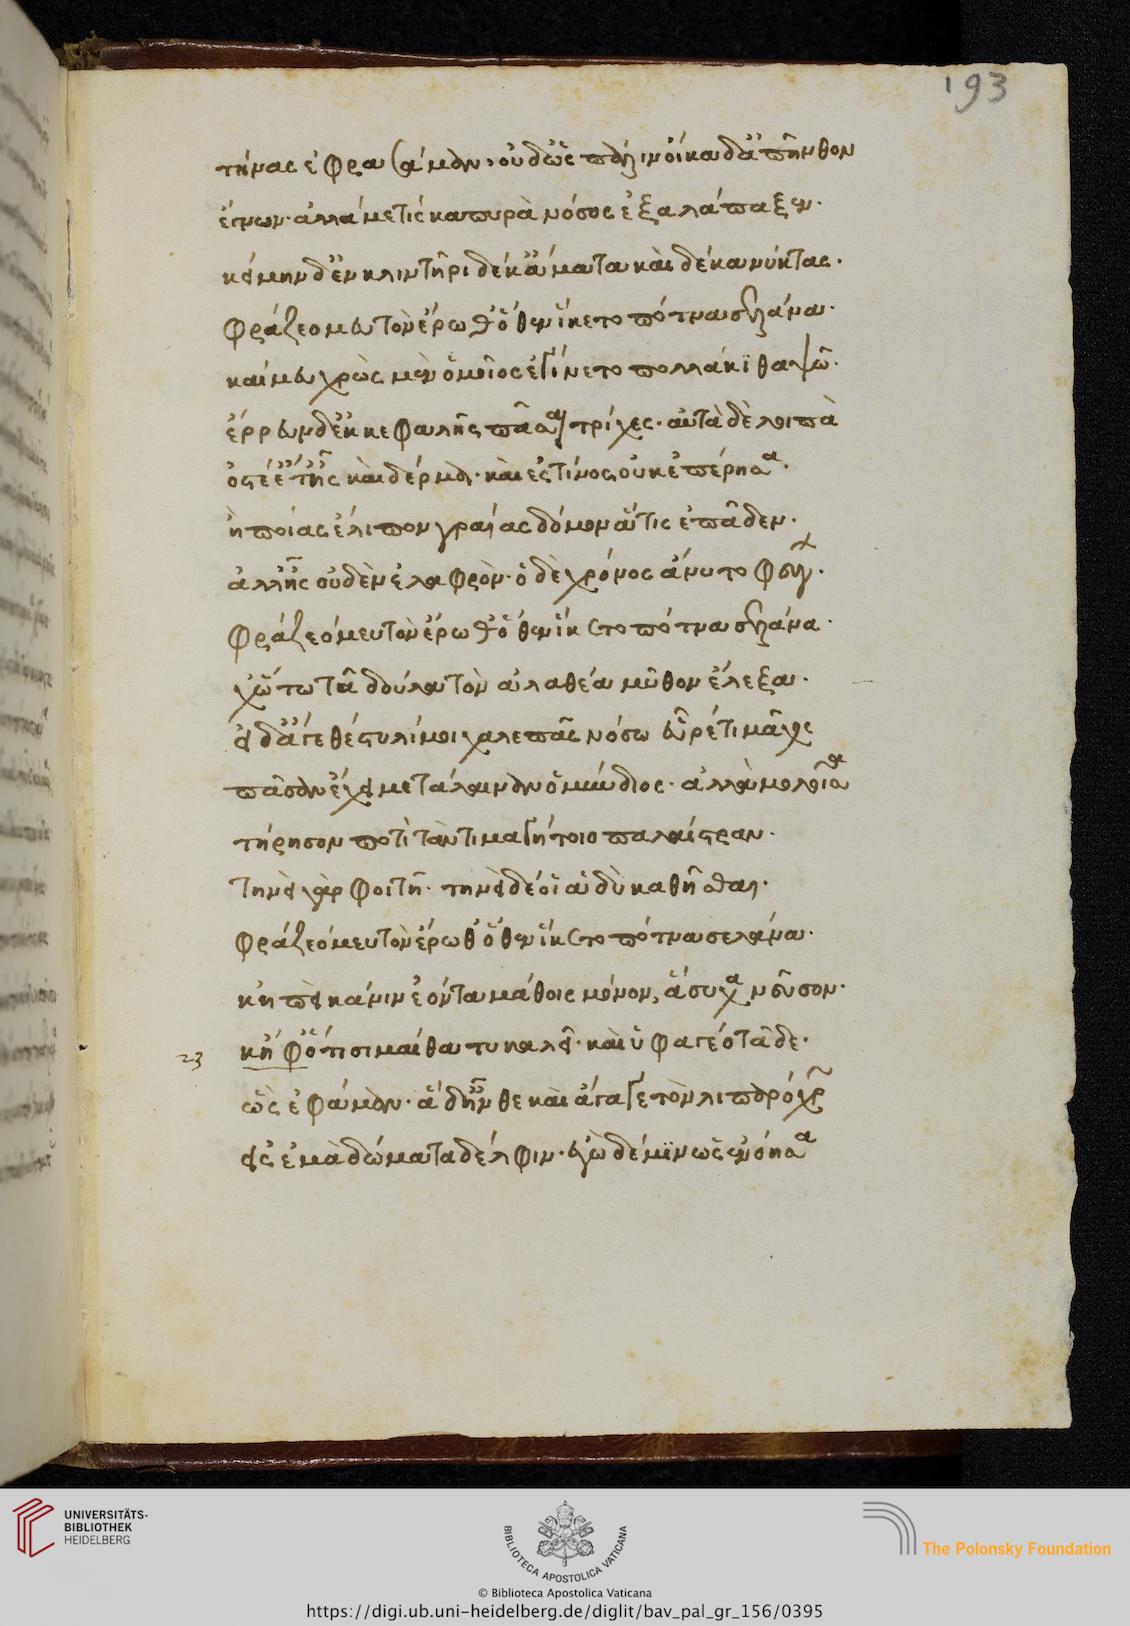 193
τήνας ἐφρασάμαν· οὐδ' ὡς πάλιν οἴκαδ' ἀπῆνθον
ἔγνων· ἀλλά με τις καπυρὰ νόσος ἐξαλάπαξεν·
κείμην δ' ἐν κλιντῆρι δέκ' ἄματα καὶ δέκα νύκτας·
φράζεό μευ τὸν ἔρωθ' ὅθεν ἵκετο πότνα σελάνα·
καί μευ χρὼς μὲν ὁμοῖος ἐγίνετο πολλάκι θαψῶ·
ἔρρευν δ' ἐκ κεφαλῆς πᾶσαι τρίχες· αὐτὰ δὲ λοιπὰ
ὀστέ' ἔτ' ἦς καὶ δέρμα· καὶ ἐς τίνος οὐκ ἐπέρησα·
ἢ ποίας ἔλιπον γραίας δόμον ἅτις ἐπᾶδεν·
ἀλλ' ἦς οὐδὲν ἐλαφρὸν· ὁ δὲ χρόνος ἄνυτο φεύγ·
φράζεό μευ τὸν ἔρωθ' ὅθεν ἵκετο πότνα σελάνα·
χ' οὕτω τᾶ δούλα τὸν ἀλαθέα μῦθον ἔλεξα·
εἰ δ' ἄγε θέστυλί μοι χαλεπᾶς νόσω εὑρέ τι μᾶχος
πᾶσαν ἔχει με τάλαιναν ὁ μύνδιος· ἀλλὰ μολοῖσα
τήρησον ποτὶ τὰν τιμαγήτοιο παλαίστραν·
τηνεὶ γὰρ φοιτῆ· τηνεὶ δέ οἱ ἁδὺ καθῆσθαι·
φράζεό μευ τὸν ἔρωθ' ὅθεν ἵκετο πότνα σελάνα·
κἠ πεί κά νιν ἐόντα μάθοις μόνον, ἄσυχα νεῦσον·
23 κἠφ' ὅτι σιμαίθα τυ καλεῖ· καὶ ὑφαγέο τᾶδε·
ὣς ἐφάμαν· ἁ δ' ἦνθε καὶ ἄγαγε τὸν λιπαρόχρ
εἰς ἐμὰ δώματα δέλφιν· ἐγὼ δέ μιν ὡς ἐνόησα
UNIVERSITÄTS-
BIBLIOTHEK
HEIDELBERG
BIBLIOTECA APOSTOLICA VATICANA
The Polonsky Foundation
© Biblioteca Apostolica Vaticana
https://digi.ub.uni-heidelberg.de/diglit/bav_pal_gr_156/0395